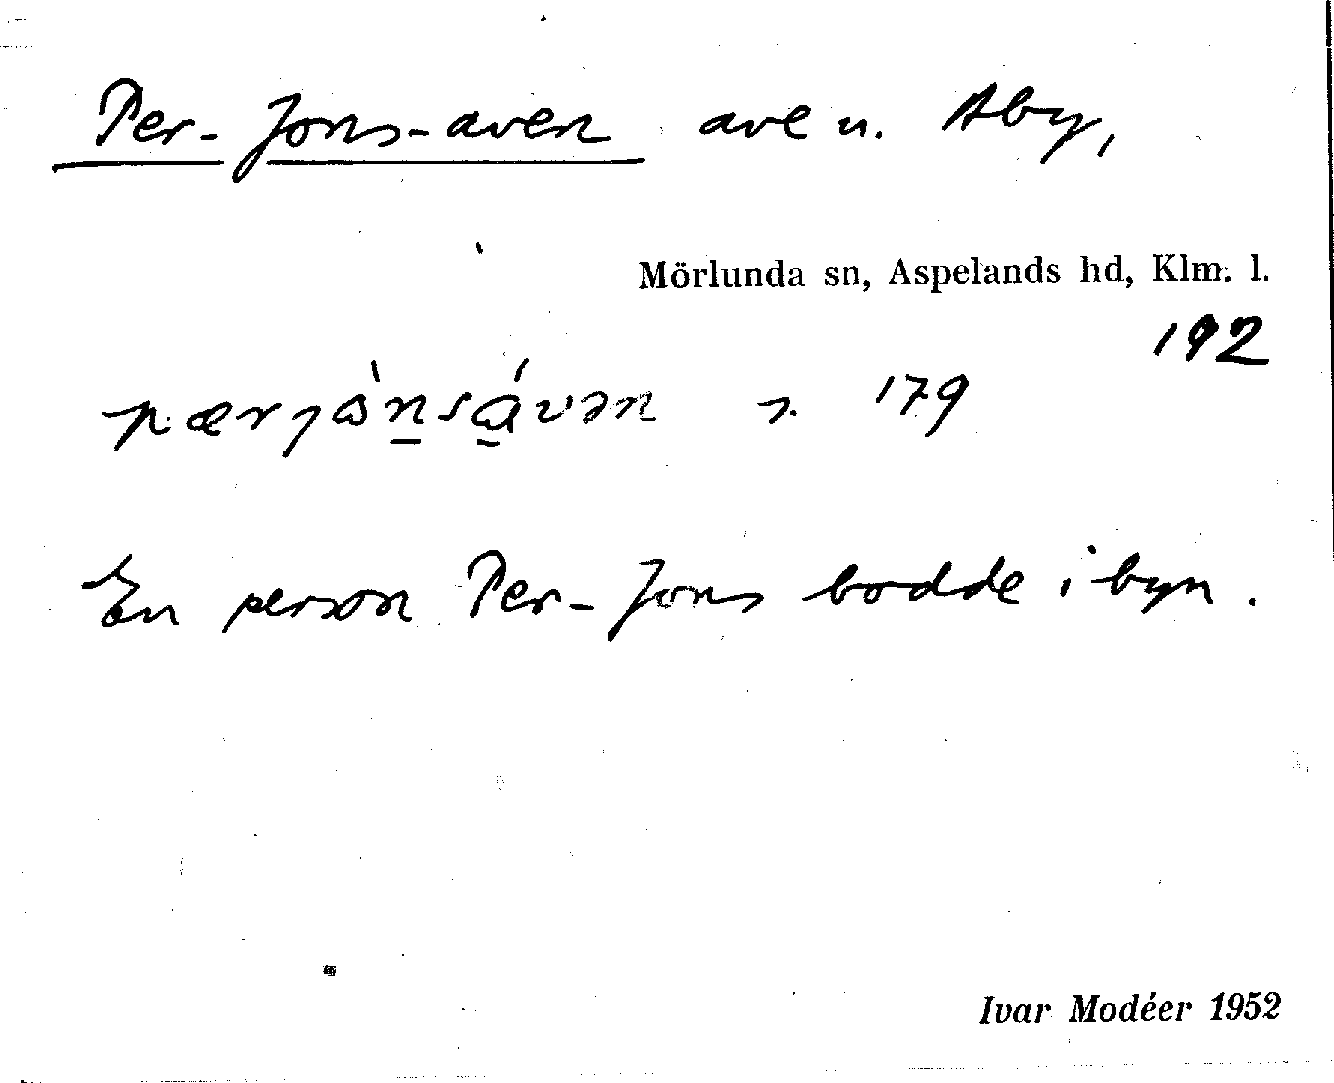 Per-Jons-aven ave u. Aby,
Mörlunda sn, Aspelands hd, Klm. l.
192
179
En person Per-Jons bodde i byn.
Ivar Modéer 1952